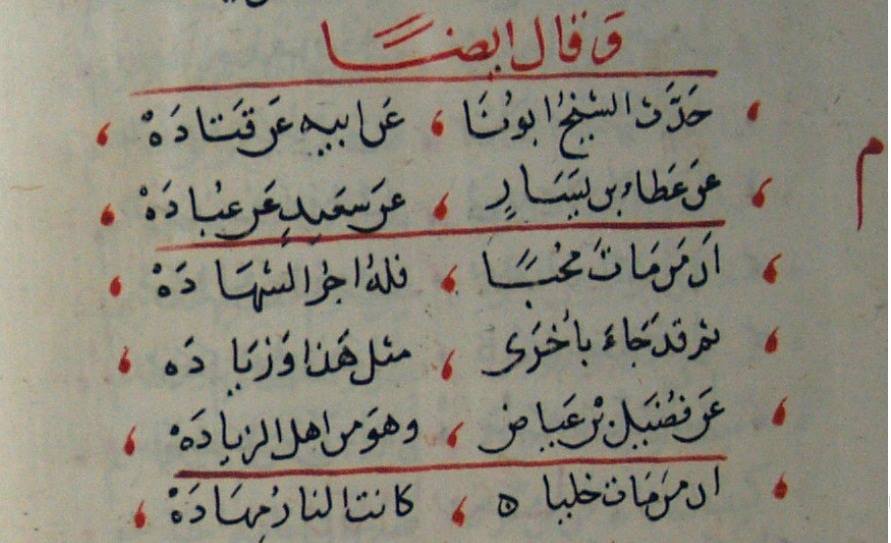 وقال ايضًا
حَدَّثَ الشيخُ ابونَا ، عَن ابيه عَن قتَادَهْ
عَن عَطاء بن يَسَارٍ ، عن سَعِيدٍ عَن عبَادَهْ
ان مَن مَاتَ محُبًا ، فلهُ اجرُ الشهَادَهْ
ثم قد جَاءَ باُخرَى ، مثل هَذا وَزيَادَه
عَن فضُيَل بن عَياض ، وهوَ من اهل الزيادَهْ
ان مَن مَات خليا ه ، كانت النارُ مهَادَهْ
م